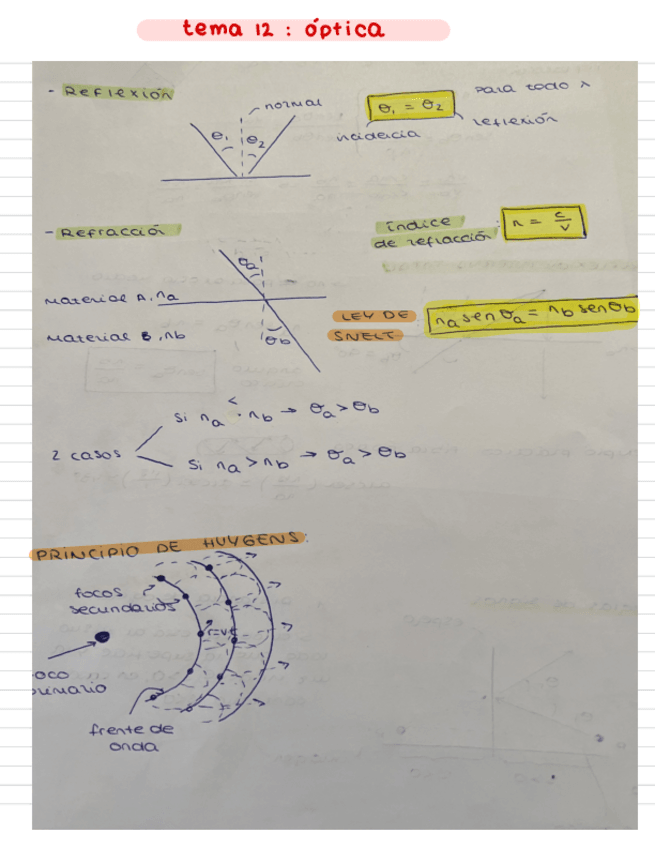 tema 12 : óptica
- Reflexión
normal
θ₁ = θ₂
para todo λ
θ₁ θ₂
incidecia
reflexión
- Refracción
índice
de refracción
n = c/v
θa
Material A, na
Material B, nb
θb
LEY DE
SNELT
na sen θa = nb sen θb
Si na < nb → θa > θb
2 casos
Si na > nb → θa > θb
PRINCIPIO DE HUYGENS:
focos
secundarios
r=vt
oco
frente de
onda